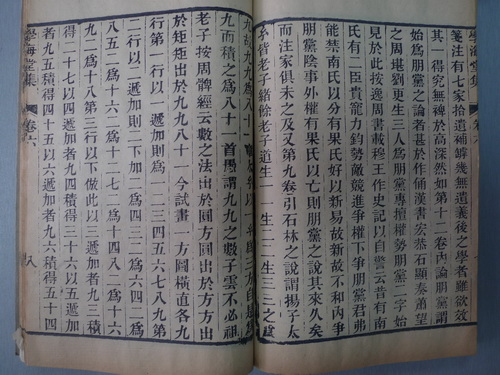 學海堂集
箋注有七家拾遺補罅幾無遺義後之學者雖欲效
其一得究無裨於高深然如第十二卷內論朋黨
始爲朋黨之論者甚於作俑漢書宏恭石顯奏蕭望
之周堪劉更生三人爲朋黨專擅權勢朋黨二字始
見於此按逸周書載穆王作史記以自警云昔有南
氏有二臣貴寵力鈞勢敵競進爭權下爭朋黨君弗
能禁南氏以分有果氏好以新易故新故不和內爭
朋黨陰事外權有果氏以亡則朋黨之說其來久矣
而注家俱未之及又第九卷引石林之說謂揚子太
玄皆老子緒餘老子道生一一生二二生三三之爲
九故九九爲八十一
九而積之爲八十一首愚謂九九之數子雲不必祖
老子按周髀經云數之法出於圓方圓出於方方出
於矩矩出於九九八十一今試畫一方圖橫直各九
行第一行以一遞加則爲一二三四五六七八九第
二行以二遞加則二加二爲四二三爲六四二爲
八五二爲十六二爲十二七二爲十四八二爲十六
九二爲十八第三行以下做此以三遞加者九三積
得二十七以四遞加者九四積得三十六以五遞加
者九五積得四十五以六遞加者九六積得五十四
學海堂集 卷六 八